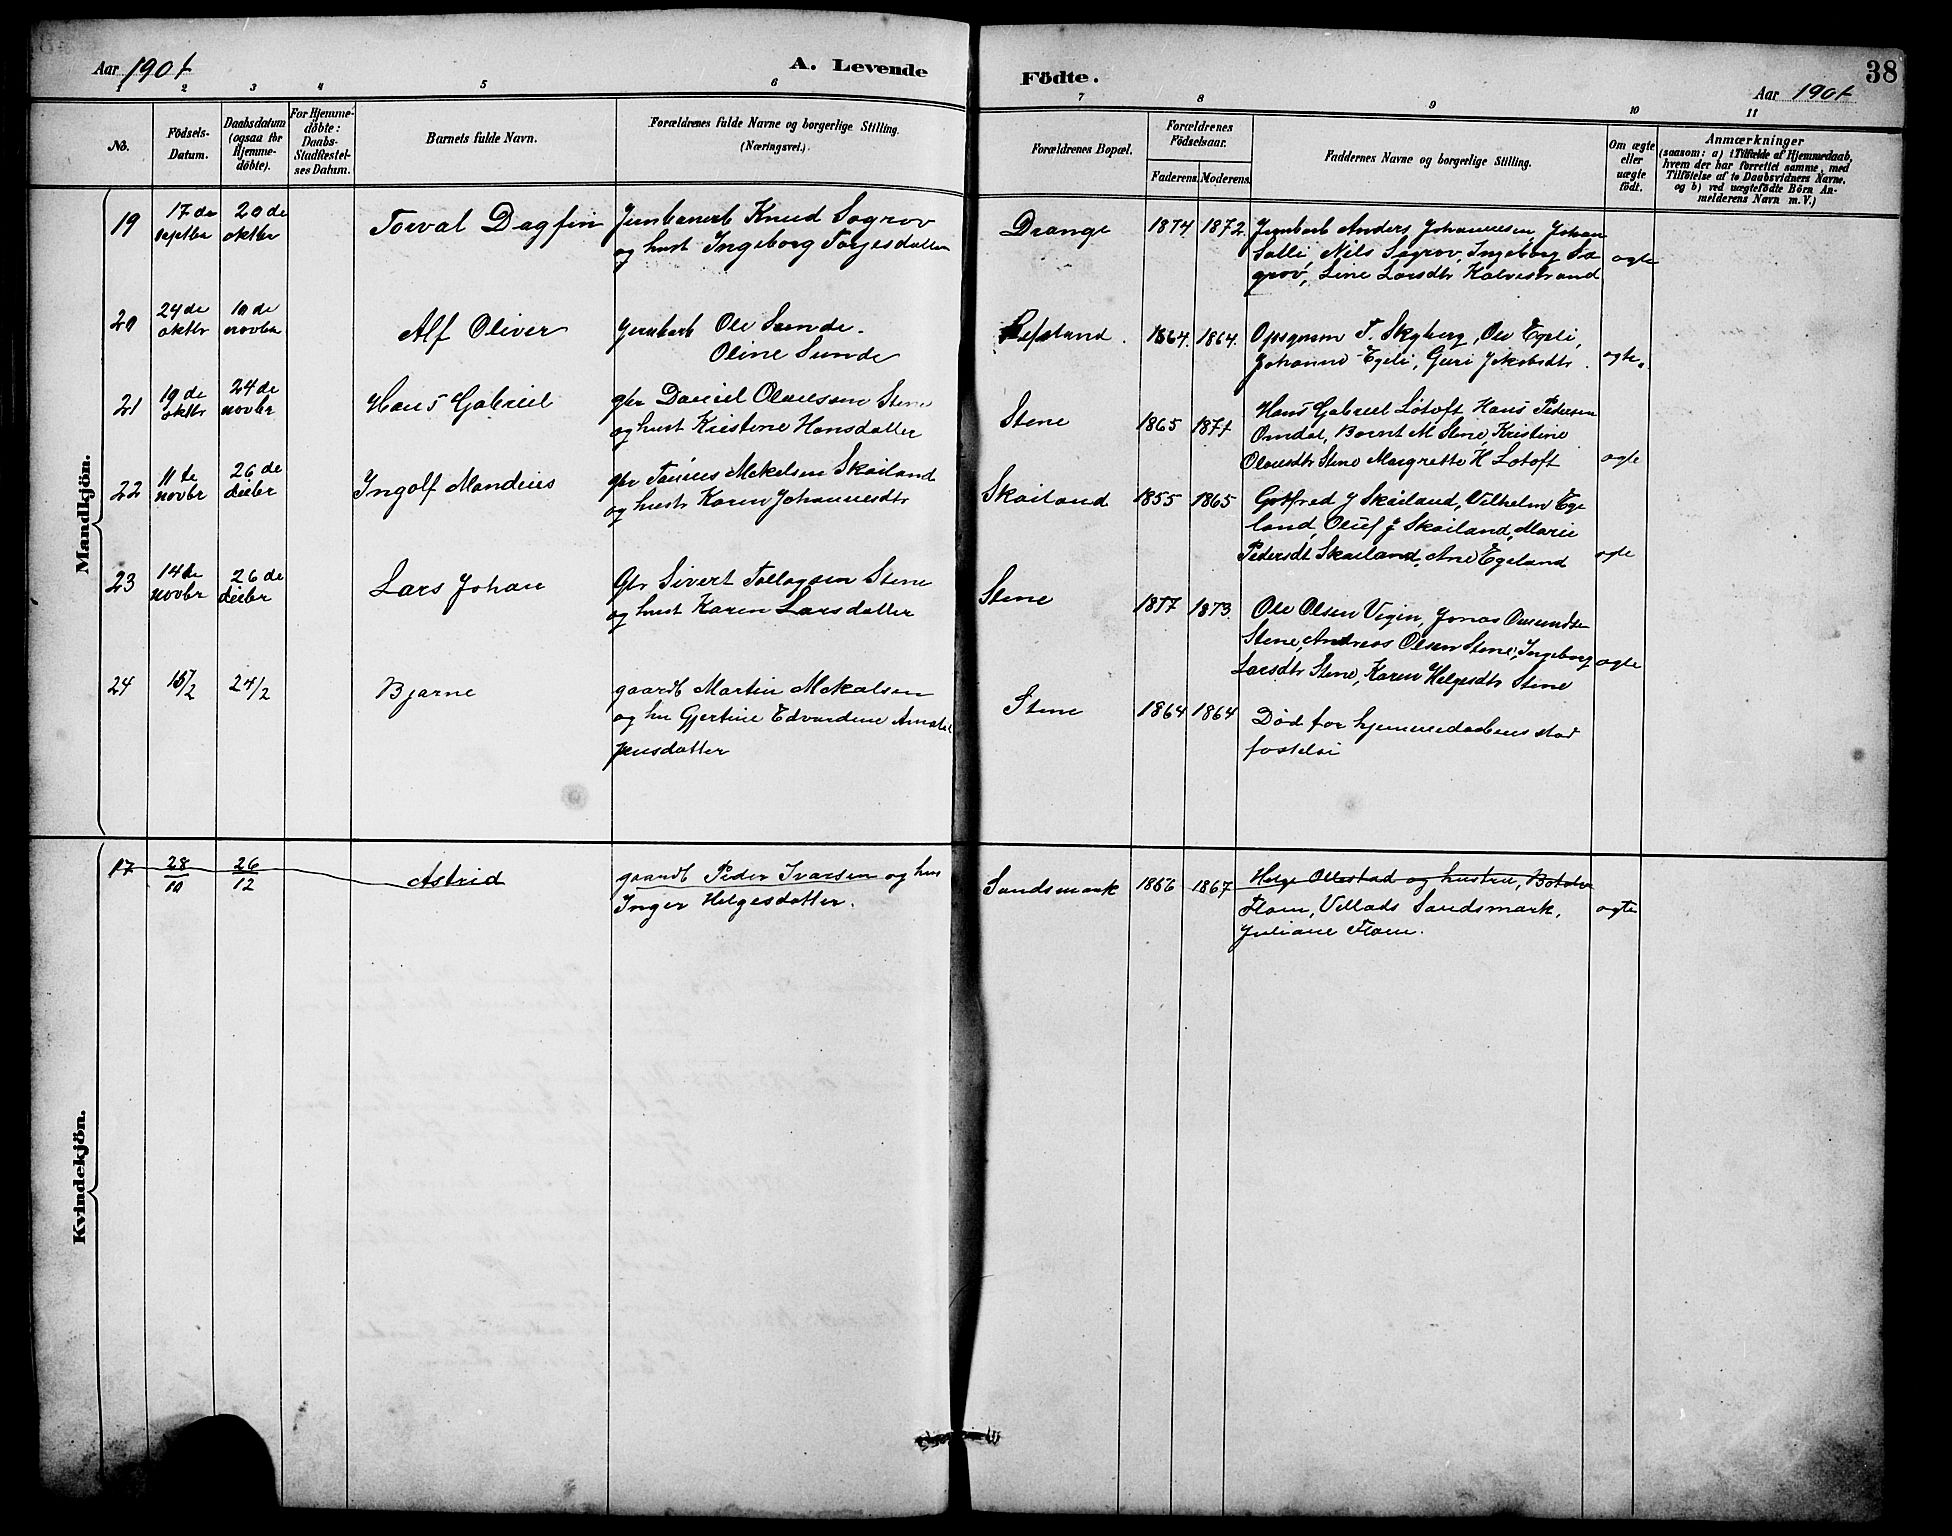 Aar 1901
A. Levende
Födte.
38
Aar 1901
1 2 3 4 5 6 7 8 9 10 11
No.
Födsels-
Datum.
Daabsdatum
(ogsaa for
Hjemme-
döbte).
For Hjemme-
döbte:
Daabs-
Stadfæstel-
ses Datum.
Barnets fulde Navn.
Forældrenes fulde Navne og borgerlige Stilling.
(Næringsvei.)
Forældrenes Bopæl.
Forældrenes
Födselsaar.
Faderens. Moderens.
Faddernes Navne og borgerlige Stilling.
Om ægte
eller
uægte
födt.
Anmærkninger
(saasom: a) i Tilfælde af Hjemmedaab,
hvem der har forrettet samme, med
Tilföielse af to Daabsvidners Navne,
og b) ved uægtefödte Börn An-
melderens Navn m. V.)
Mandkjön.
19 17 de septbr 20 de oktbr Torval Dagfin Jernbanearb Knud Sogrov
og hust Ingeborg Torjesdatter
Drange 1874 1872 Jernbarb Anders Johannesen, Johan
Salli, Nils Sogrov, Ingeborg So
grov, Line Larsdtr Kalvestrand ægte
20 24 de oktbr 10 de novbr Alf Oliver jernbarb Ole Sunde.
Oline Sunde
Refsland. 1864. 1864. Opsynsm T. Skyberg, Ole Egeli,
Johanne Egeli, Guri Jakobsdtr. ægte.
21 19 de oktbr 24 de novbr Hans Gabriel gbr Daniel Olaussen Stene
og hust Kristene Hansdatter
Stene 1865 1871 Hans Gabriel Lotoft, Hans Pedersen
Omdal, Bornt M Stene, Kristine
Olausdtr Stene Margrethe H Lotoft ægte
22 11 te novbr 26 de decbr Ingolf Mandius gbr Tønnes Mekalsen Skailand
og hustr Karen Johannesdtr
Skailand 1855 1865 Gotfred J Skailand, Vilhelm Ege
land, Oluf J Skailand, Marie
Pedersdt Skailand, Ane Egeland ægte
23 14 de novbr 26 de decbr Lars Johan Gbr Sivert Tollagsen Stene
og hust Karen Larsdatter
Stene 1877 1873. Ole Olsen Vigin, Jonas Omundsen
Stene, Andreas Olsen Stene, Ingeborg
Larsdtr Stene, Karen Helgesdtr Stene ægte
24 24/2 Bjarne gaardb Martin Mekalsen
og hu Gjertine Edvardine
Jensdatter
Stene 1864 1864 Død før hjemmedaabens stad
fæstelse
Kvindekjön.
17 28/10 26/12 Astrid gaardb Peder Ivarsen og hus
Inger Helgesdatter.
Sandsmark 1866 1867 Helge Ollestad og hustru,
Flam, Villads Sandsmark,
Juliane Flam. ægte